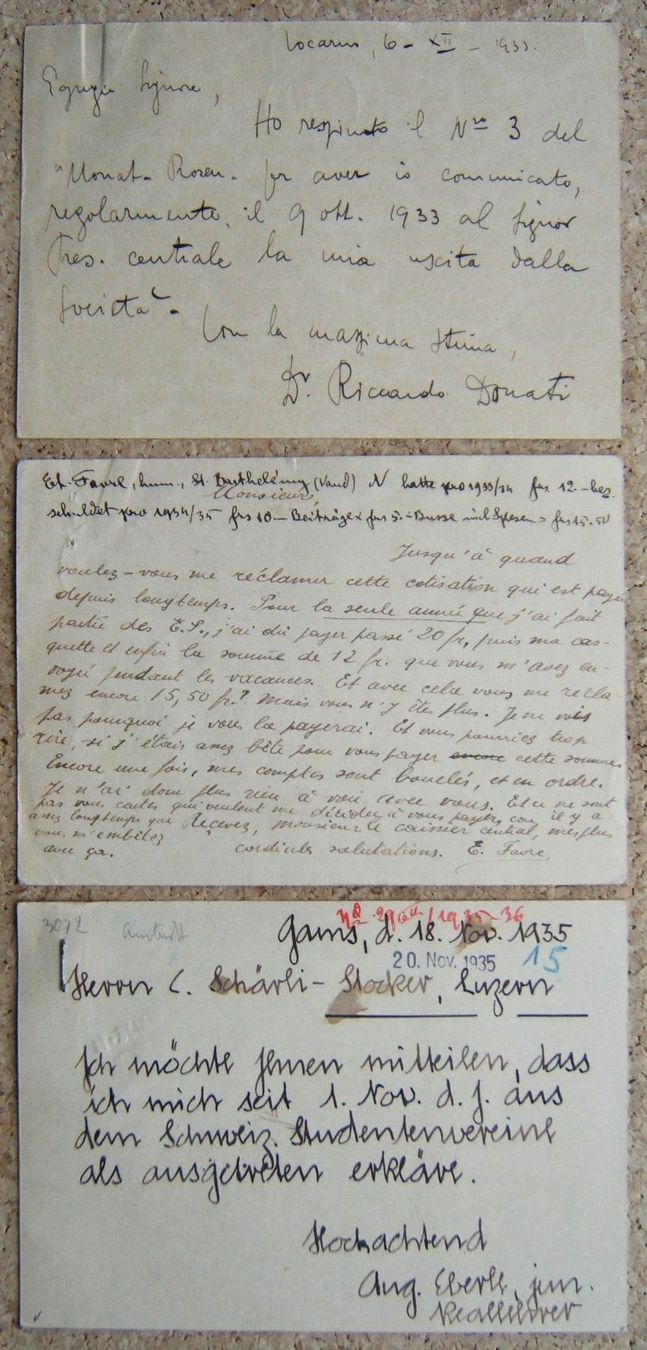 Locarno, 6 - XII - 1933.
Egregio Signore,
Ho respinto il Nro 3 del
"Monat-Rosen- per aver io comunicato,
regolarmente, il 9 ott. 1933 al Signor
Pres. centrale la mia uscita dalla
Società.
Con la massima stima,
Dr. Riccardo Donati
Et. Favre, hum., St. Barthélémy (Vaud) N hatte pro 1933/34 frs. 12.- bez.
Monsieur,
schuldet pro 1934/35 frs 10.- Beiträge + frs 5.- Busse inkl Spesen = frs 15.50
Jusqu'à quand
voulez-vous me réclamer cette cotisation qui est payée
depuis longtemps. Pour la seule année que j'ai fait
partie des E.S., j'ai dû payer passé 20 fr, puis ma cas-
quette et enfin la somme de 12 fr. que vous m'avez en-
voyé pendant les vacances. Et avec cela vous me récla-
mez encore 15,50 fr.? Mais vous n'y êtes plus. Je ne vois
pas pourquoi je vous la payerai. Et vous pourriez trop
rire, si j'étais assez bête pour vous payer encore cette somme.
Encore une fois, mes comptes sont bouclés, et en ordre.
Je n'ai donc plus rien à voir avec vous. Et ce ne sont
pas vous cartes qui veulent me décider à vous payer, car il y a
assez longtemps que Recevez, monsieur le caissier central, mes plus
vous m'embêtez
avec ça. cordiales salutations. E. Favre
3072
1935-36
Gams, d. 18. Nov. 1935
20. Nov. 1935 15
Herrn C. Schärli-Stocker, Luzern
Ich möchte Ihnen mitteilen, dass
ich mich seit 1. Nov. d. J. aus
dem Schweiz. Studentenvereine
als ausgetreten erkläre.
Hochachtend
Aug. Eberle, jun.
Reallehrer